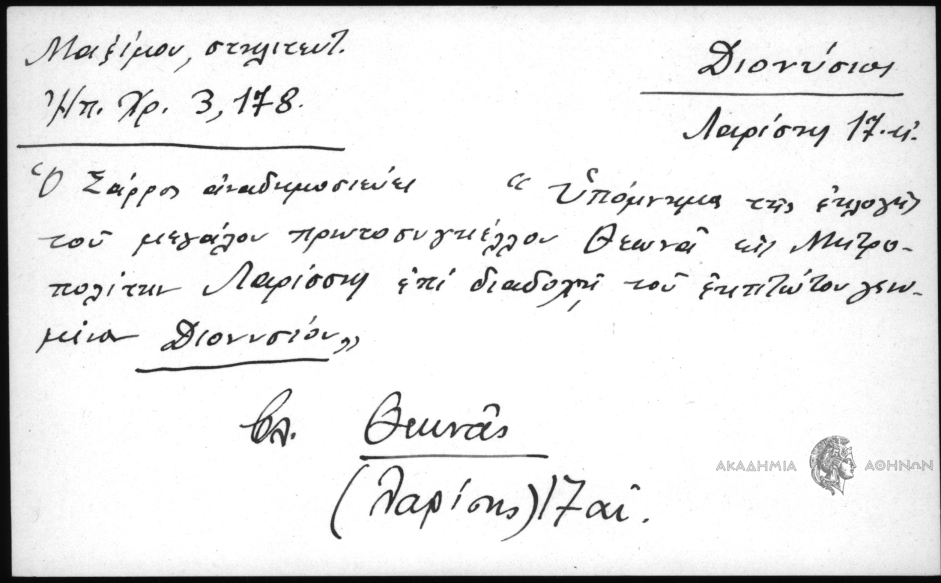 Μαξίμου, στηλιτευτ.
Ἠπ. Χρ. 3, 178.
Διονύσιος
Λαρίσης 17. αἰ.
Ὁ Σάρρος ἀναδημοσιεύει “Ὑπόμνημα τῆς ἐκλογῆς
τοῦ μεγάλου πρωτοσυγκέλλου Θεωνᾶ εἰς Μητρο-
πολίτην Λαρίσσης ἐπὶ διαδοχῇ τοῦ ἐκπτώτου
Διονυσίου„
βλ. Θεωνᾶς
(Λαρίσης) 17 αἰ.
ΑΚΑΔΗΜΙΑ ΑΘΗΝΩΝ